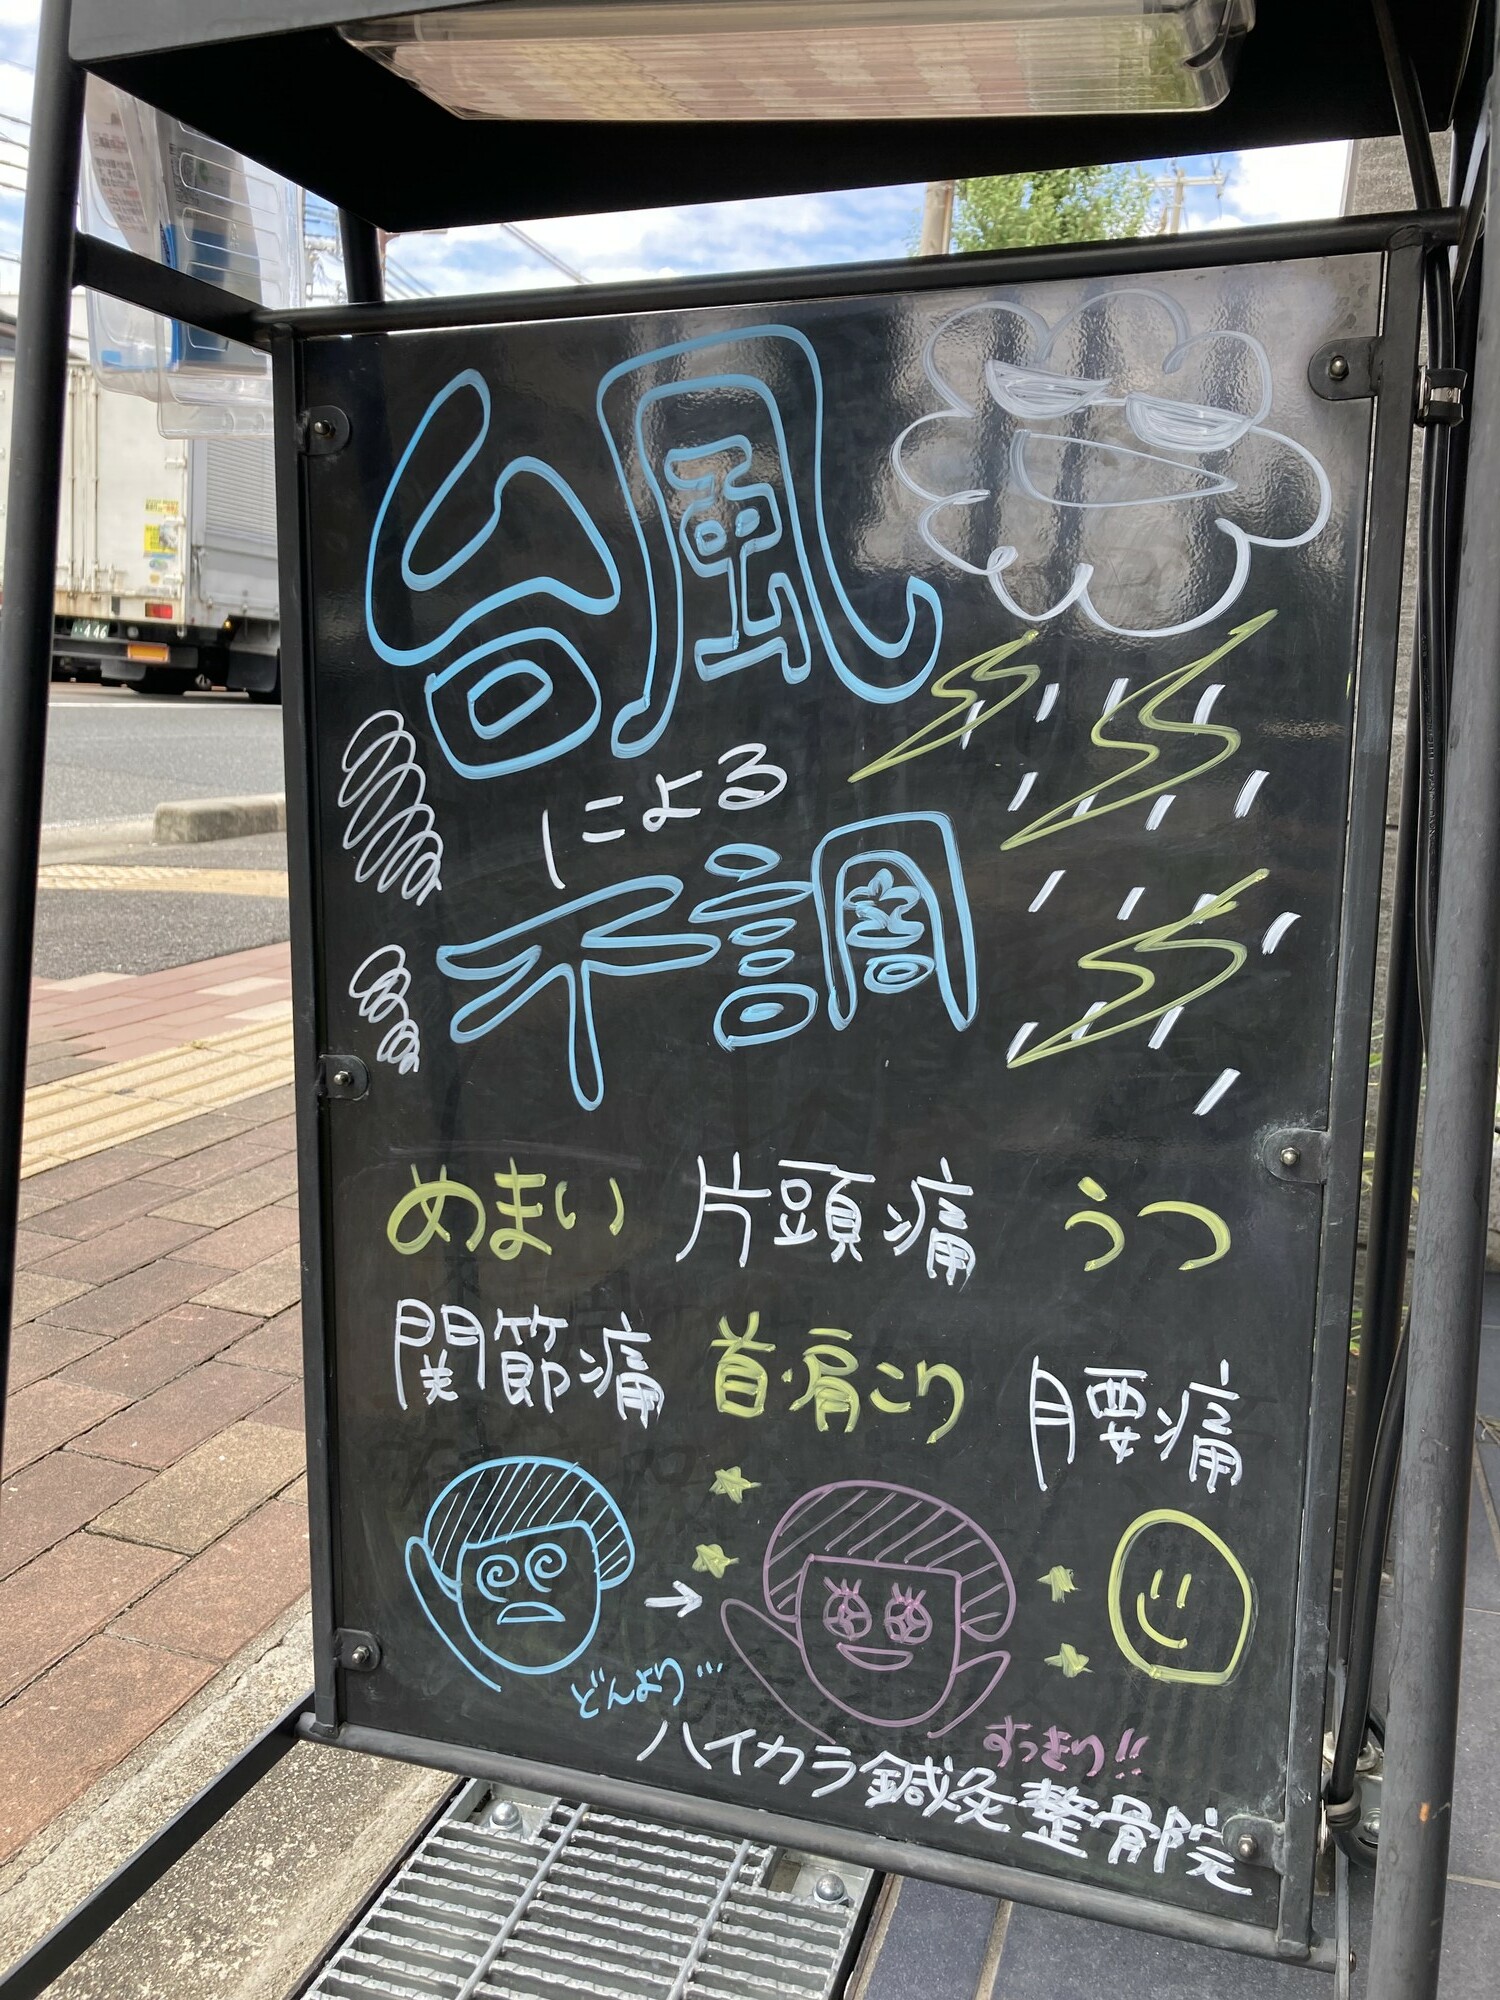 台風
による
不調
めまい 片頭痛 うつ
関節痛 首・肩こり 腰痛
どんより…
すっきり!!
ハイカラ鍼灸整骨院
446